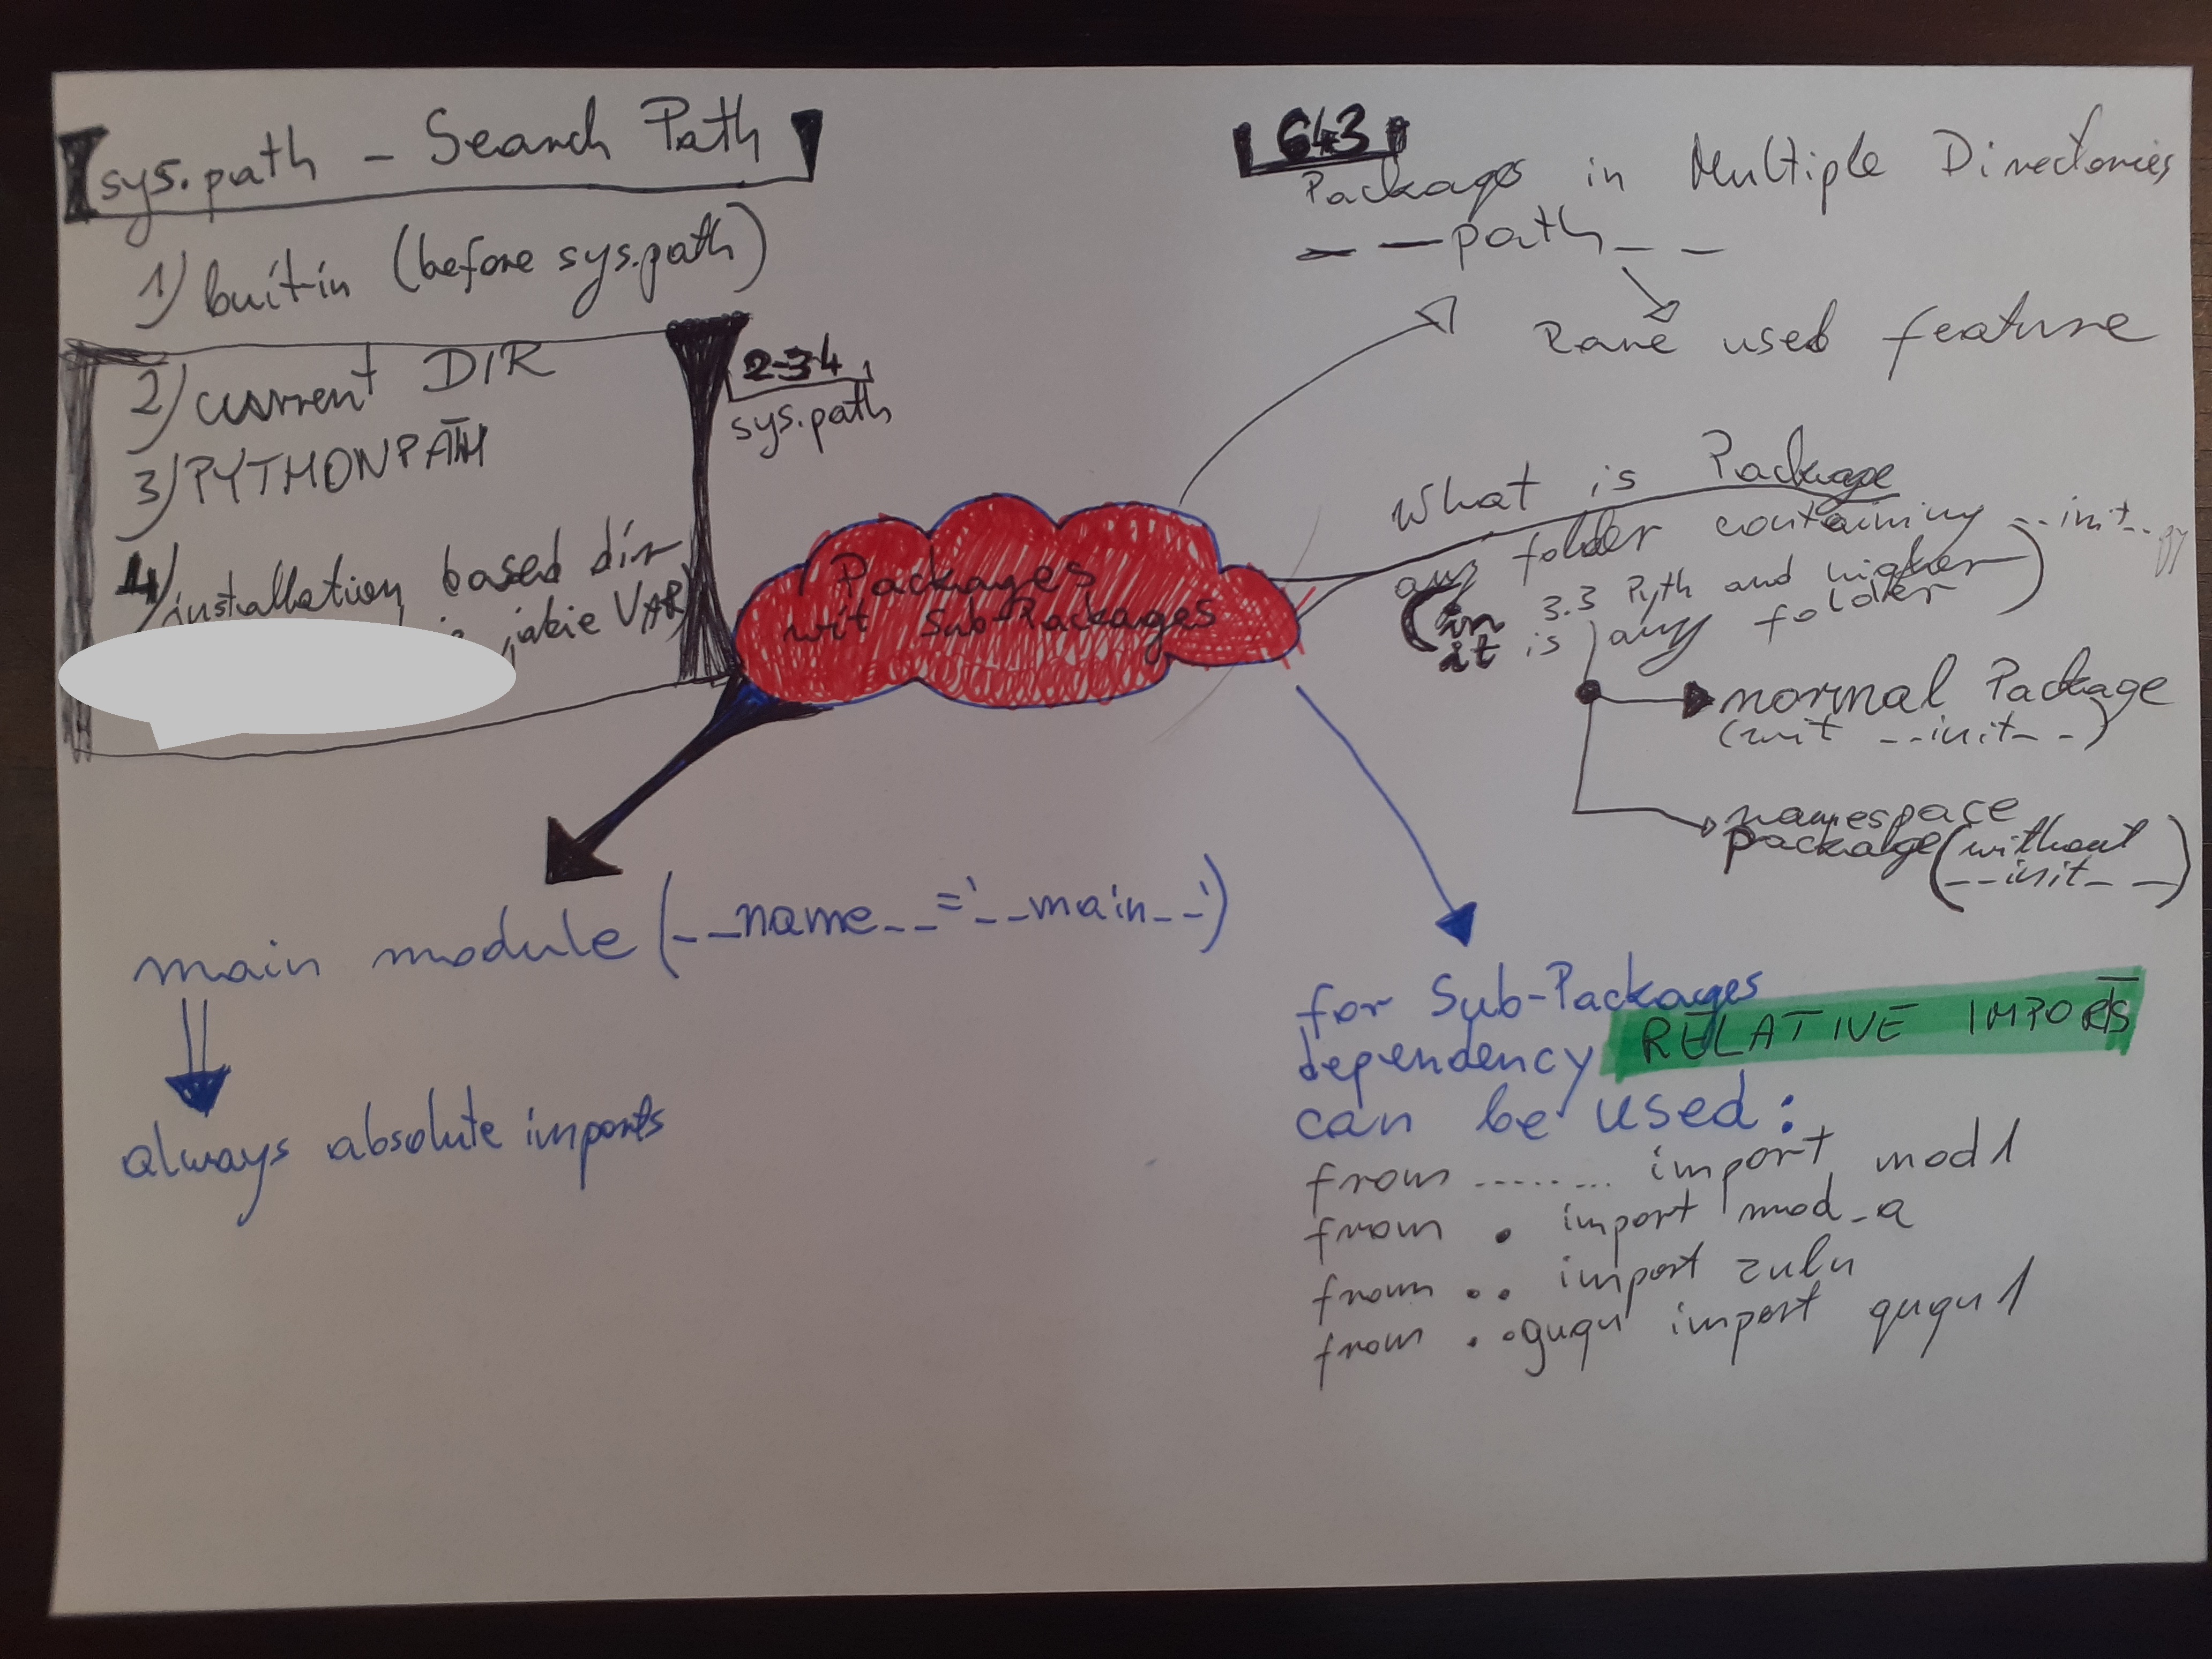 sys.path - Search Path
1) buit-in (before sys.path)
2) current DIR
3) PYTHONPATH
4) installation based dir
jakie VAR)
2-3-4
sys.path
6.4.3
Packages in Multiple Directories
__path__
Rare used feature
Packages
wit Sub-Packages
What is Package
any folder containing __init__.py
(in 3.3 Pyth and higher
it is any folder)
normal Package
(wit __init__)
namespace
package (without
__init__)
main module (__name__='__main__')
always absolute imports
for Sub-Packages
dependency RELATIVE IMPORTS
can be used:
from ........ import mod1
from . import mod_a
from .. import zulu
from ..guqu import ququ1